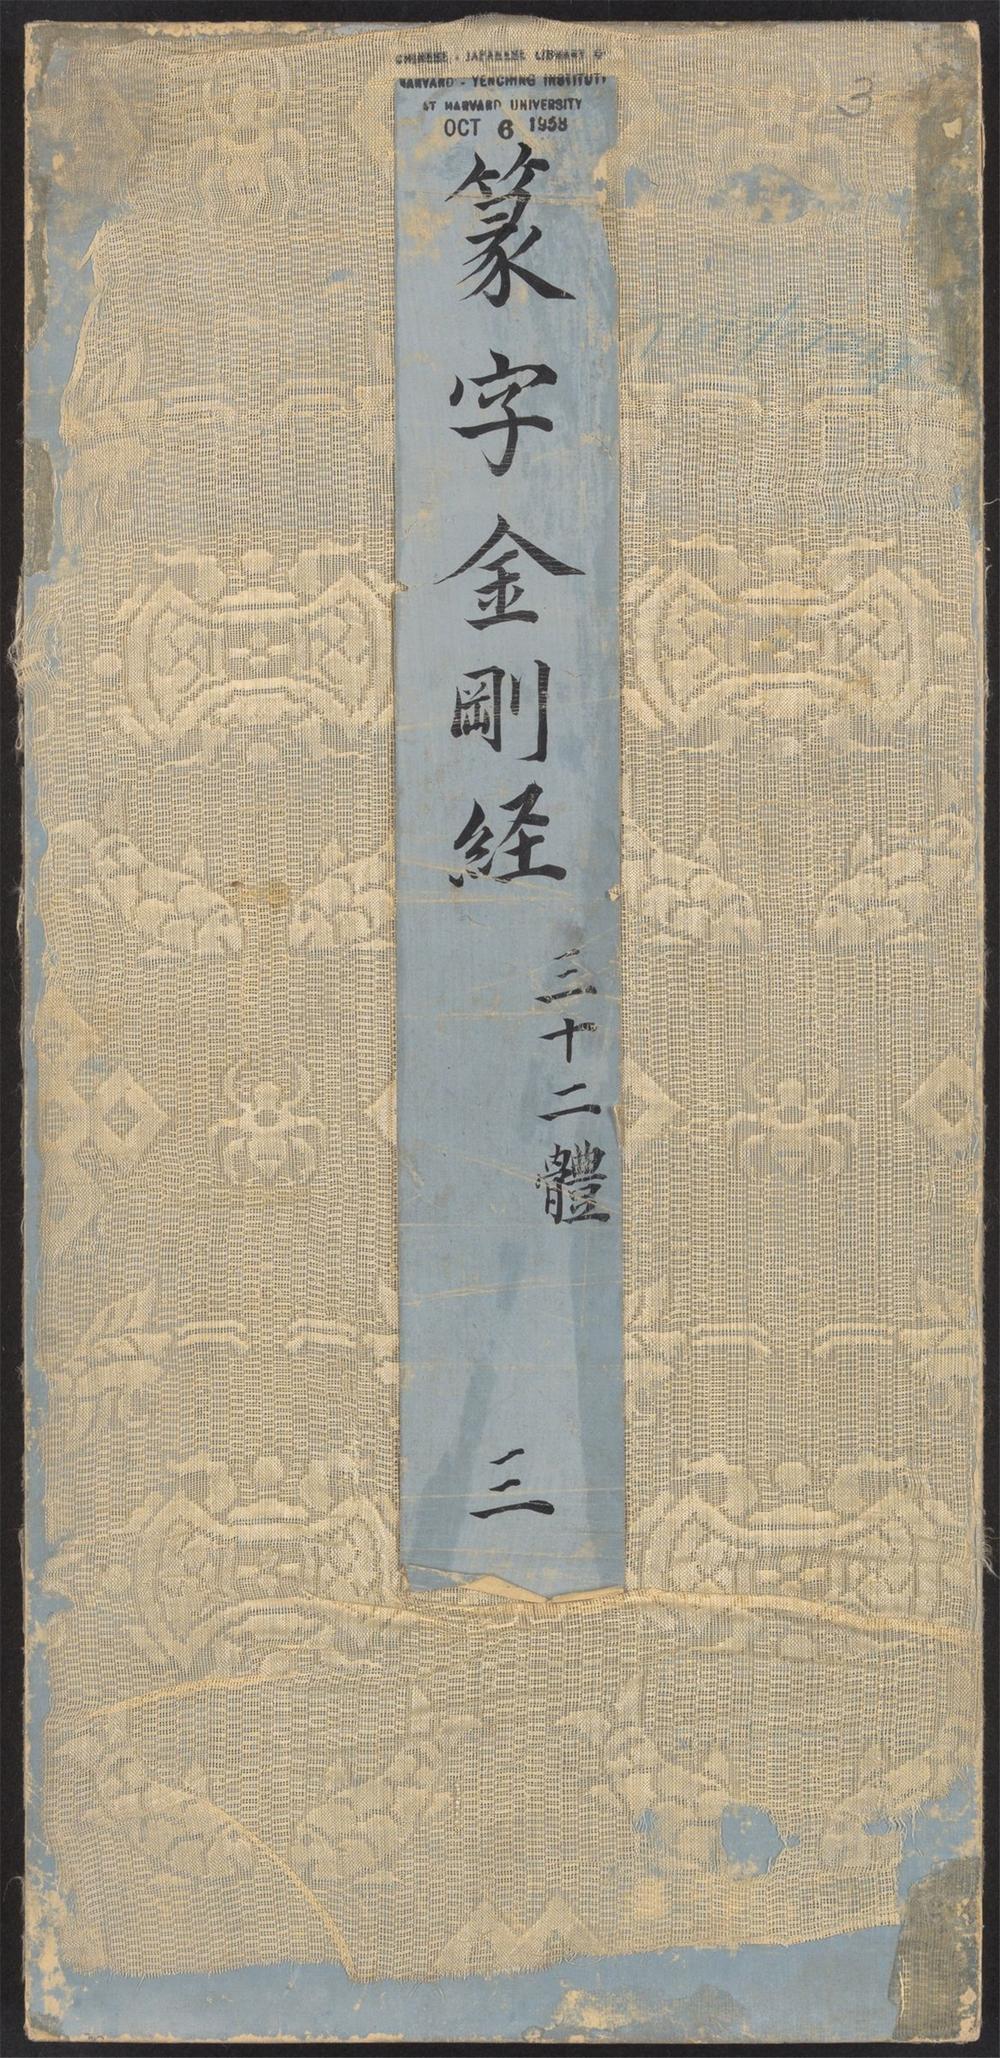 CHINESE - JAPANESE LIBRARY OF
HARVARD - YENCHING INSTITUTE
AT HARVARD UNIVERSITY
OCT 6 1958
3
篆字金剛経
三十二體
三